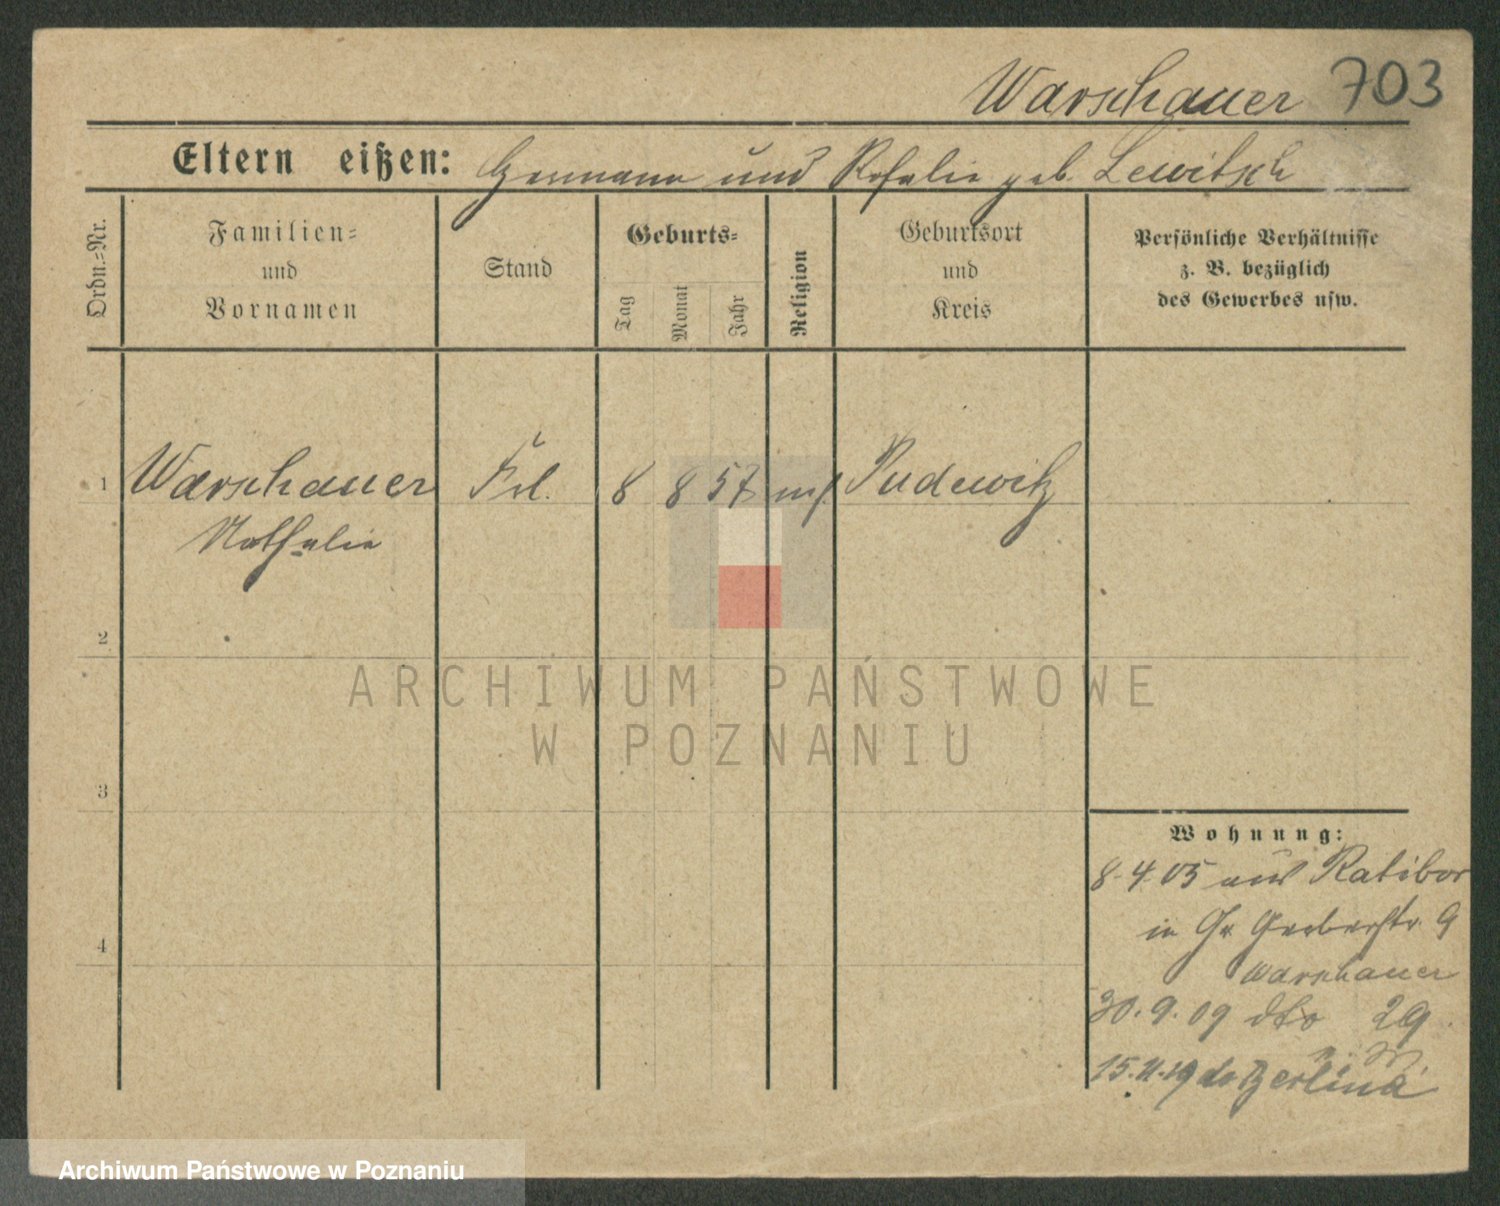 Warschauer 703
Eltern eißen: Hermann und Rosalie geb. Lewitsch
Ordn.-Nr.
Familien=
und
Vornamen
Stand
Geburts=
Tag
Monat
Jahr
Religion
Geburtsort
und
Kreis
Persönliche Verhältnisse
z. B. bezüglich
des Gewerbes usw.
1 Warschauer Frl. 8 8 57 Pudewitz
Nathalie
2
ARCHIWUM PAŃSTWOWE
W POZNANIU
3
Wohnung:
8.4.05 aus Ratibor
in Gr Gerberstr. 9
Warschauer
4
30.9.09 dto 29
15.11.19 do Berlina
Archiwum Państwowe w Poznaniu